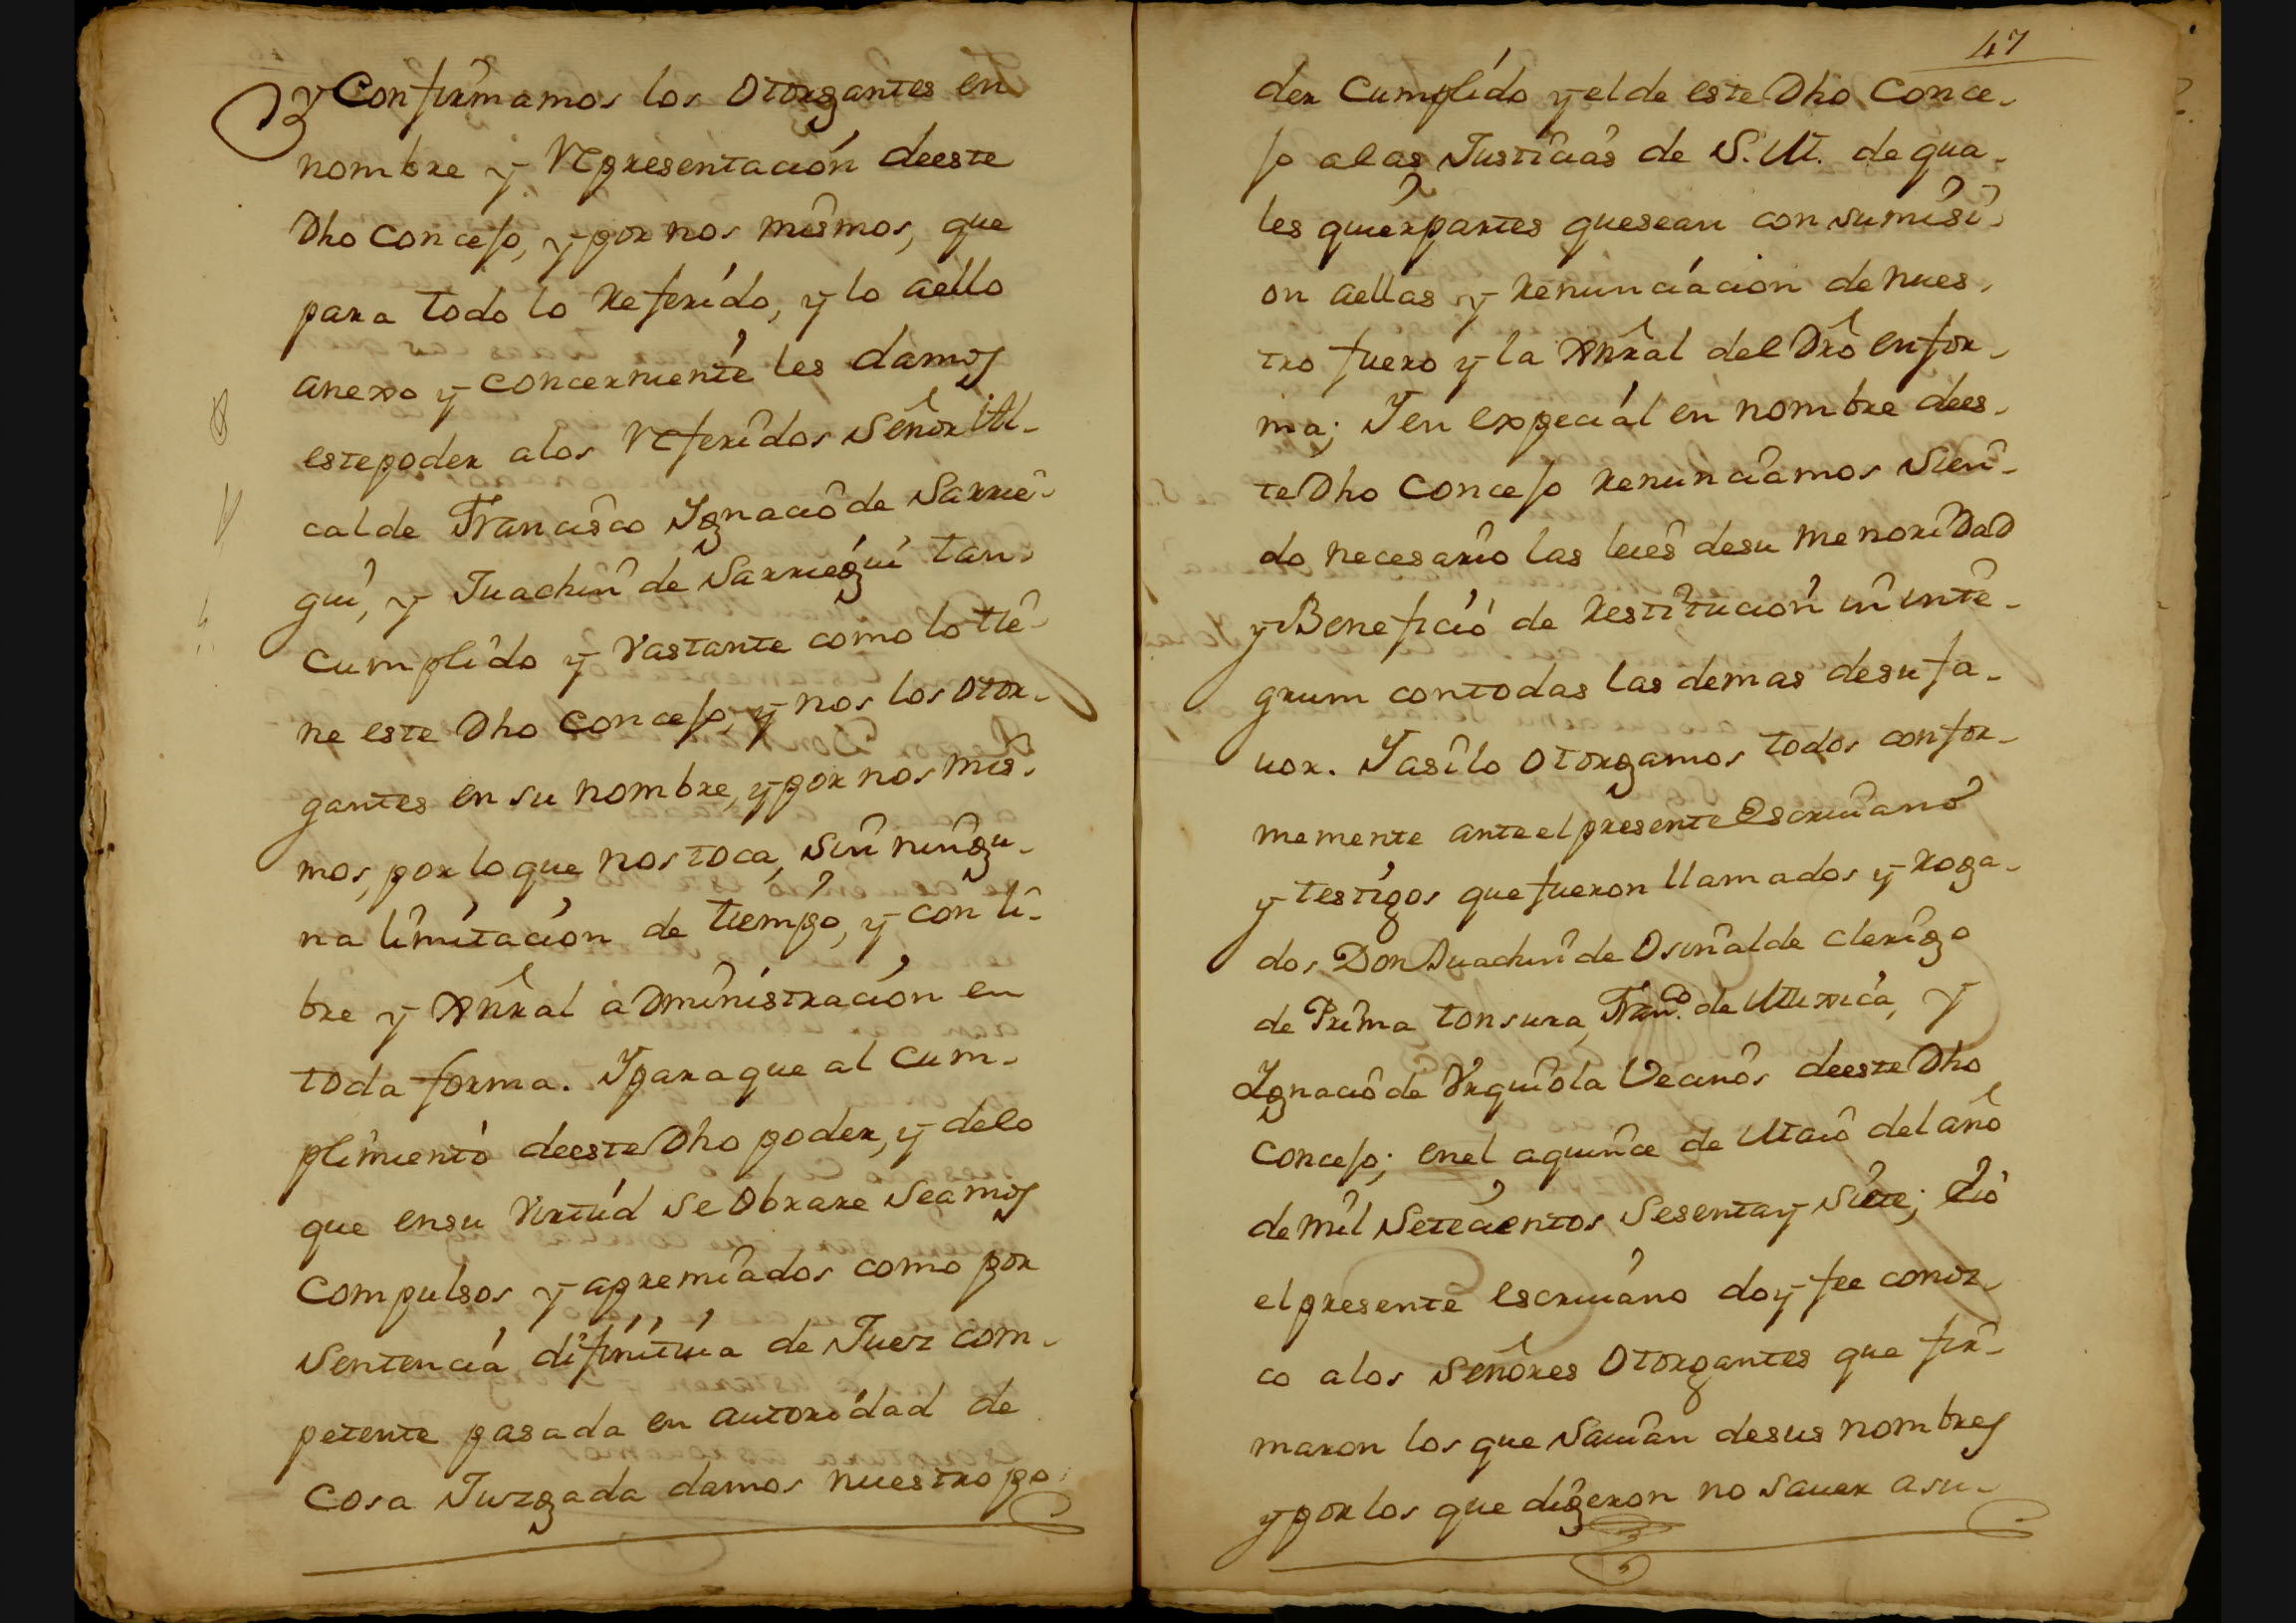 y Confirmamos los Otorgantes en
nombre y Representación deeste
Dho Concejo, y por nos mismos, que
para todo lo Referido, y lo aello
anexo y concerniente les damos
estepoder alos Referidos Señor Al-
calde Francisco Ygnacio de Sarrie-
gui, y Juachin de Sarriegui tan
cumplido y vastante como lo tie-
ne este Dho Concejo, y nos los otor-
gantes en su nombre, y por nos mis-
mos, por loque nos toca, sin ningu-
na limitación de tiempo, y con li-
bre y Xnral aDministración en
toda forma. Yparaque al Cum-
plimiento deeste Dho poder, y delo
que ensu Virtud se Obrare Seamos
Compulsos y apremiados como por
Sentencia difinitiva de Juez com-
petente pasada en autoridad de
Cosa Juzgada damos nuestro po-
47
der Cumplido y el de este Dho Conce-
jo alas Justicias de S. M. de qua-
les quier partes quesean con sumisi-
on aellas y Renunciacion de nues-
tro fuero y la Xnral del Dro enfor-
ma; Y en expecial en nombre dees-
te Dho Concejo Renunciamos Sien-
do necesario las leies desu menoriDaD
y Beneficio de Restitucion in inte-
grum contodas las demas desu fa-
uor. Y asilo otorgamos todos confor-
memente ante el presente Escriuano
y testigos que fueron llamados y Roga-
dos Don Juachin de Osinalde Clerigo
de Prima tonsura, Franco. de Muxica, y
Ygnacio de Vrquiola Vecinos deeste Dho
Concejo; enel aquince de Maio del año
de mil Setecientos Sesenta y Siete; Eio
el presente escriuano doy fee conoz-
co alos Señores Otorgantes que fir-
maron los que Sauian desus nombres
y por los que digeron no Sauer asu-